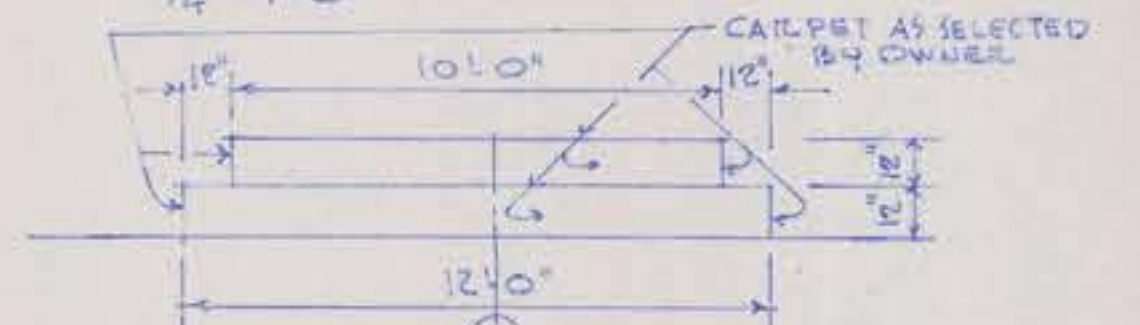 CARPET AS SELECTED
BY OWNER
12" 10'-0" 12"
12"
12"
12'-0"